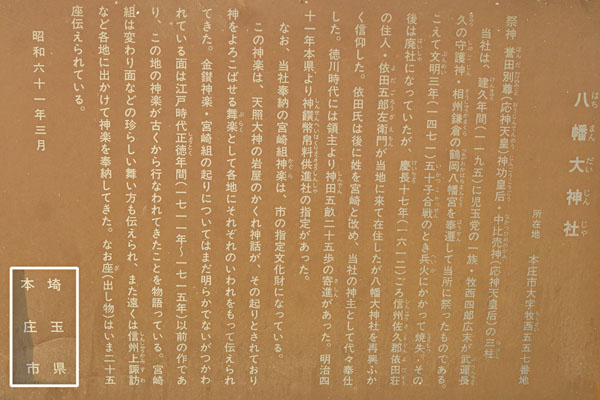 八幡大神社
所在地 本庄市大字牧西五五七番地
祭神 誉田別尊(応神天皇)神功皇后・中比売神(応神天皇后)の三柱
当社は、建久年間(一一九五)に児玉党の一族・牧西四郎広末が武運長
久の守護神・相州鎌倉の鶴岡八幡宮を奉遷して当所に祭ったものである。
こえて文明三年(一四七一)五十子合戦のとき兵火にかかって焼失、その
後は廃社になっていたが、慶長十七年(一六一二)ごろ信州佐久郡依田荘
の住人・依田五郎左衛門が当地に来て在住したが八幡大神社を再興ふか
く信仰した。依田氏は後に姓を宮崎と改め、当社の神主として代々奉仕
した。徳川時代には領主より神田五畝二十五歩の寄進があった。明治四
十一年本県より神饌幣帛料供進社の指定があった。
なお、当社奉納の宮崎組神楽は、市の指定文化財になっている。
この神楽は、天照大神の岩屋のかくれ神話が、その起りとされており
神をよろこばせる舞楽として各地にそれぞれのいわれをもって伝えられ
てきた。金鑚神楽・宮崎組の起りについてはまだ明らかでないがつかわ
れている面は江戸時代正徳年間(一七一一年〜一七一五年)以前の作であ
り、この地の神楽が古くから行なわれてきたことを物語っている。宮崎
組は変わり面などの珍らしい舞い方も伝えられ、また遠くは信州上諏訪
など各地に出かけて神楽を奉納してきた。なお座(出し物)はいま二十五
座伝えられている。
昭和六十一年三月
埼玉県
本庄市